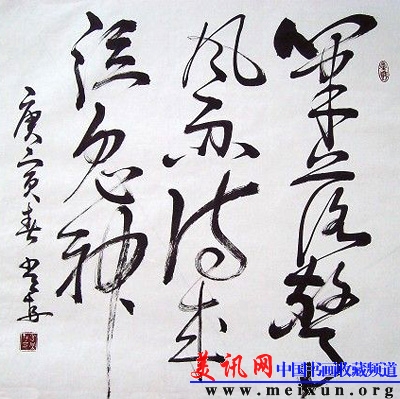 筆落驚
风雨诗成
泣鬼神
庚寅春
美讯网 中国书画收藏频道
www.meixun.org